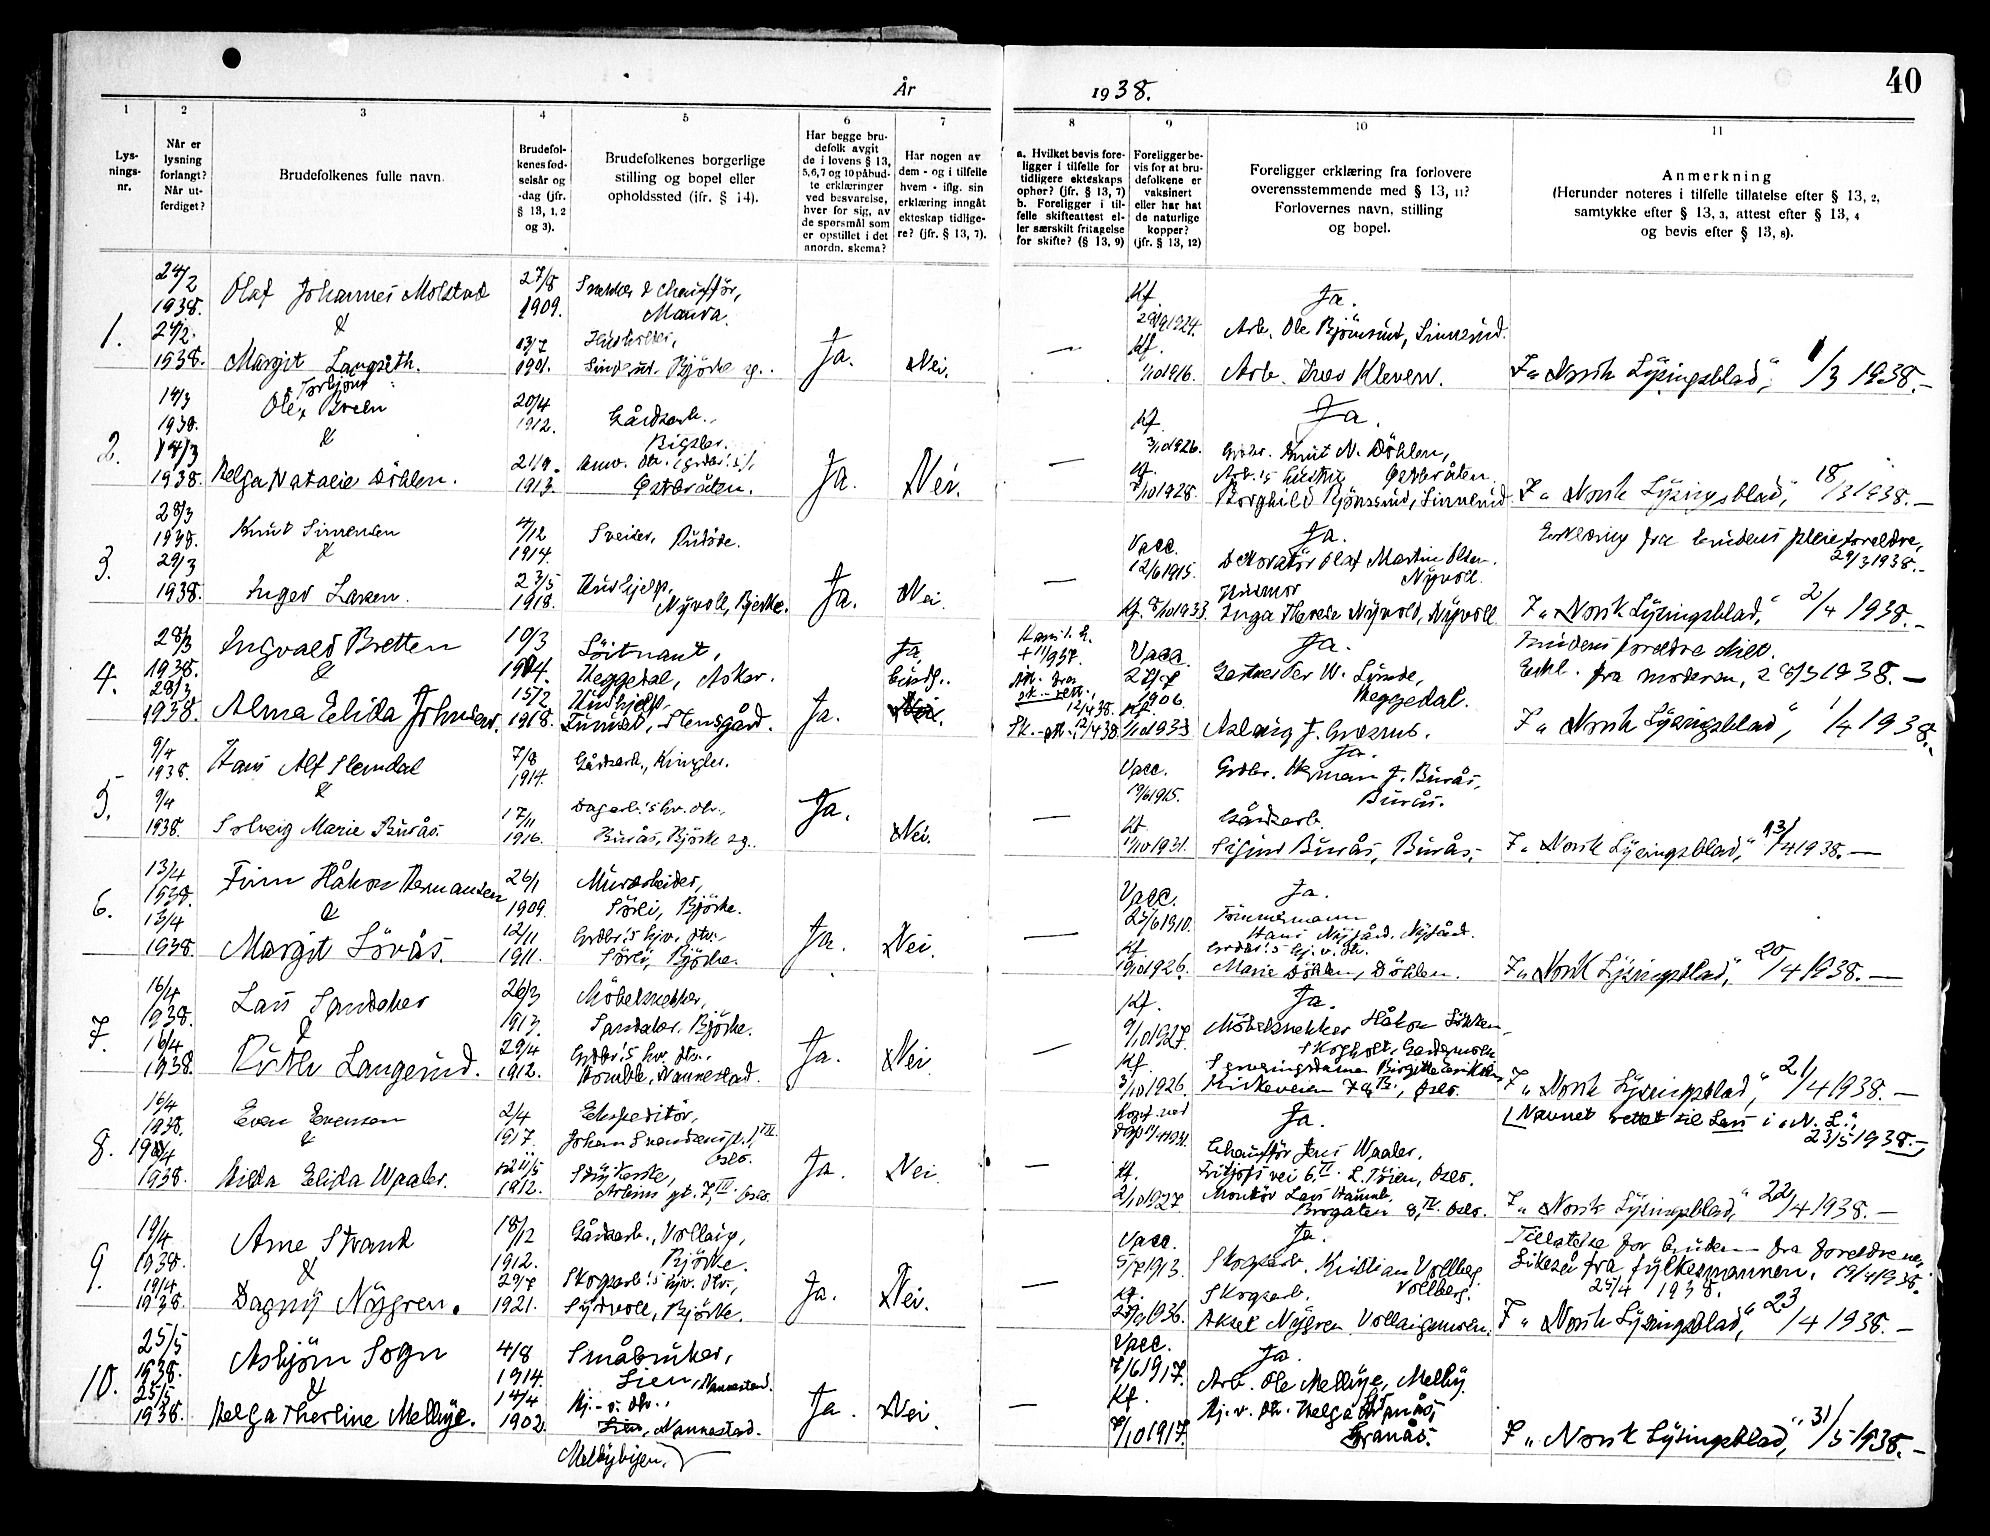 40
År 1938.
1 2 3 4 5 6 7 8 9 10 11
Lys-
nings-
nr.
Når er
lysning
forlangt?
Når ut-
ferdiget?
Brudefolkenes fulle navn.
Brudefol-
kenes fød-
selsår og
-dag (jfr.
§ 13, 1, 2
og 3).
Brudefolkenes borgerlige
stilling og bopel eller
opholdssted (jfr. § 14).
Har begge bru-
defolk avgit
de i lovens § 13,
5, 6, 7 og 10 påbud-
te erklæringer
ved besvarelse,
hver for sig, av
de spørsmål som
er opstillet i det
anordn. skema?
Har nogen av
dem - og i tilfelle
hvem - iflg. sin
erklæring inngått
ekteskap tidlige-
re? (jfr. § 13, 7).
a. Hvilket bevis fore-
ligger i tilfelle for
tidligere ekteskaps
ophør? (jfr. § 13, 7)
b. Foreligger i til-
felle skifteattest el-
ler særskilt fritagelse
for skifte? (§ 13, 9)
Foreligger be-
vis for at bru-
defolkene er
vaksinert
eller har hat
de naturlige
kopper?
(jfr. § 13, 12)
Foreligger erklæring fra forlovere
overensstemmende med § 13, 11?
Forlovernes navn, stilling
og bopel.
Anmerkning
(Herunder noteres i tilfelle tillatelse efter § 13, 2,
samtykke efter § 13, 3, attest efter § 13, 4
og bevis efter § 13, 8).
1.
24/2
1938.
Olaf Johannes Molstad
&
27/8
1909.
Snekker & chauffør,
Maura.
24/2.
1938.
Margit Langseth.
13/7
Ja.
Nei.
—
Kf.
Ja.
Arb. Ole Bjønsund, Sinnerud.
Kf.
1/10 1916.
Arb. Kleven.
I „Norsk Lysingsblad," 1/3 1938.—
2.
14/3
1938.
Ole Torbjørn Breen
&
20/4
1912.
Gårdsarb.,
14/3
1938.
Helga Natalie Døhlen.
1913.
Østbråten.
Ja.
Nei.
—
Kf.
3/10 1926.
Ja.
Grdbr. Knut N. Døhlen,
Østbråten.
Kf.
Borghild Bjønsund, Sinnerud
I „Norsk Lysingsblad," 18/3 1938.—
3.
28/3
1938.
Knut Simensen
&
4/12
1914.
Sveiser,
29/3
1938.
Inger Larsen.
23/5
1918.
Hushjelp,
Nyvoll, Bjerke.
Ja.
Nei.
—
Vacc.
12/6 1915.
Ja.
Dekoratør Olaf Martin Olsen.
Nyvoll.
Husmor
Kf. 8/10 1933.
Inga Therese Nyvold, Nyvoll
Erklæring fra brudens pleieforeldre,
29/3 1938.—
I „Norsk Lysingsblad," 2/4 1938.—
4.
28/3
1938.
Ingvald Bretten
&
10/3
Løitnant,
Heggedal, Asker.
28/3
1938.
Alma Elida Johnsen
15/2
1918.
Hushjelp,
Stensgård.
Ja.
Ja
brudg.
Nei.
12/4 38.
Vacc.
27/7
1906.
Ja.
Gartner Per W. Lynde,
Heggedal.
Kf.
Aslaug J. Græsrud.
Brudens foreldre skilt.
Erkl. fra moderen, 28/3 1938.—
I „Norsk Lysingsblad", 1/4 1938.—
5.
9/4
1938.
Hans Alf Stemdal
&
7/8
1914.
Gårdsarb., Kringler.
9/4
1938.
Solveig Marie Burås.
17/11
1916.
Dagarb.'s hv. dtr.
Burås, Bjerke sg.
Ja.
Nei.
—
Vacc.
19/6 1915.
Ja.
Grdbr. Herman J. Burås,
Burås.
Kf.
1/10 1931.
Gårdsarb.
Sigurd Burås, Burås.
I „Norsk Lysingsblad," 13/4 1938.—
6.
13/4
1938.
Finn Håkon Hermansen
&
26/1
1909.
Murarbeider,
Sørli, Bjerke.
13/4
1938.
Margit Løvås.
12/11
1911.
Grdbr.'s hjv. dtr.,
Sørli, Bjerke.
Ja.
Nei.
—
Vacc.
23/6 1910.
Ja.
Tømmermann
Hans Nygård, Nygård.
Kf.
19/10 1926.
Grdbr.'s hj.v. dtr.
Marie Døhlen, Døhlen.
I „Norsk Lysingsblad," 20/4 1938.—
7.
16/4
1938.
Lars Sandaker
&
26/3
1913.
Møbelsnekker,
Sandaker, Bjerke.
16/4
1938.
Ruth Langerud.
29/4
1912.
Grdbr.'s hv. dtr.,
Homble, Nannestad.
Ja.
Nei.
—
Kf.
9/10 1927.
Ja.
Møbelsnekker Håkon Løkken,
Skogholt, Gardermoen
Kf.
3/10 1926.
Birgitte Eriksen,
Kirkeveien 78 III, Oslo.
I „Norsk Lysingsblad," 21/4 1938.—
[Navnet rettet til Lars i „N. L.",
23/5 1938.—]
8.
16/4
1938.
Even Evensen
&
2/4
1917.
Ekspeditør,
Johan Svendsens pl. 1, III
Oslo.
1938.
Hilda Elida Waaler.
1912.
Strykerske,
Arbins gt. 7, III Oslo.
Ja.
Nei.
—
Ja.
Chauffør Jens Waaler,
Fritjofs vei 6 II. L. Tøien, Oslo.
Kf.
2/10 1927
Montør Lars Hamnb.
Brogaten 8, IV. Oslo.
I „Norsk Lysingsblad," 22/4 1938.—
9.
19/4
1938.
Arne Strand
&
18/2
1912.
Gårdsarb., Vollaug,
Bjerke.
19/4
1938.
Dagny Nygren.
29/7
1921.
Skogsarb.'s hjv. dtr.,
Sydvoll, Bjerke.
Ja.
Nei.
—
Vacc.
5/7 1913.
Ja.
Skogsarb. Kristian Vollberg
Vollberg.
Kf.
Skogsarb.
Aksel Nygren, Vollaugmoen.
Tillatelse for bruden fra foreldrene,
Likeså fra fylkesmannen, 19/4 1938.
25/4 1938.
I „Norsk Lysingsblad," 23/4 1938.—
10.
25/5
1938.
Asbjørn Sogn
&
4/8
1914.
Småbruker,
Lien, Nannestad.
25/5
1938.
Helga Therline Melbye.
14/4
1902.
Hj.-v. dtr.,
Lien, Nannestad.
Melbybyen.
Ja.
Nei.
—
Vacc.
7/6 1917.
Ja.
Arb. Ole Melbye, Melby.
Kf.
7/10 1917.
Hj. v. dtr. Helga Granås,
Granås.
I „Norsk Lysingsblad," 31/5 1938.—